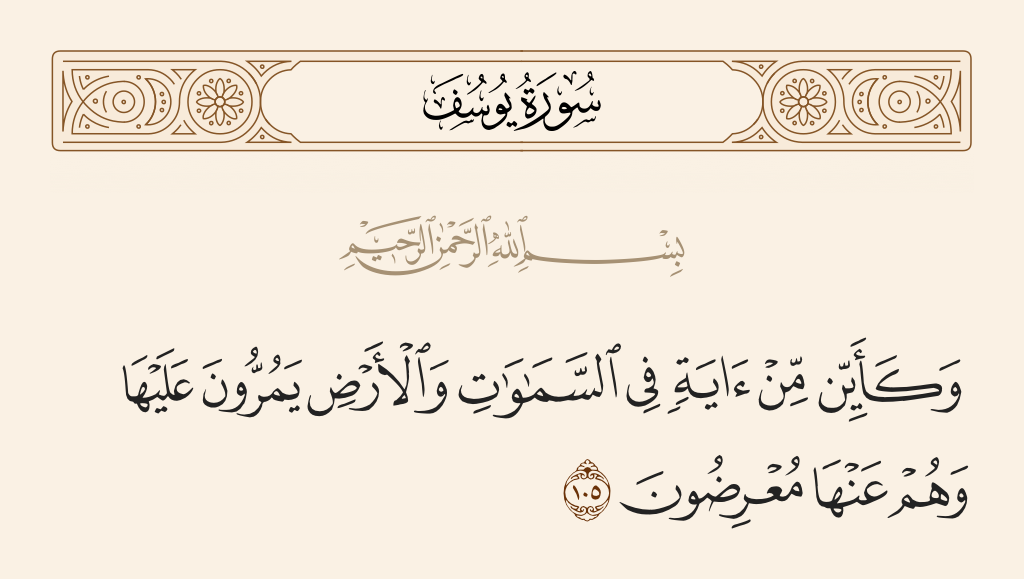 سُورَةُ يُوسُفَ
بِسْمِ ٱللَّهِ ٱلرَّحْمَٰنِ ٱلرَّحِيمِ
وَكَأَيِّن مِّنْ ءَايَةٍ فِى ٱلسَّمَٰوَٰتِ وَٱلْأَرْضِ يَمُرُّونَ عَلَيْهَا
وَهُمْ عَنْهَا مُعْرِضُونَ ١٠٥